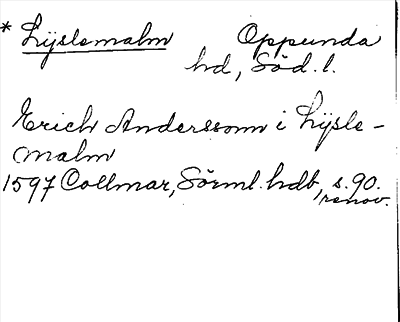 * Lijslemalm Oppunda
hd, Söd. l.
Erich Andersson i Lijsle-
malm
1597 Collmar, Sörml. hdb, s. 90.
renov.